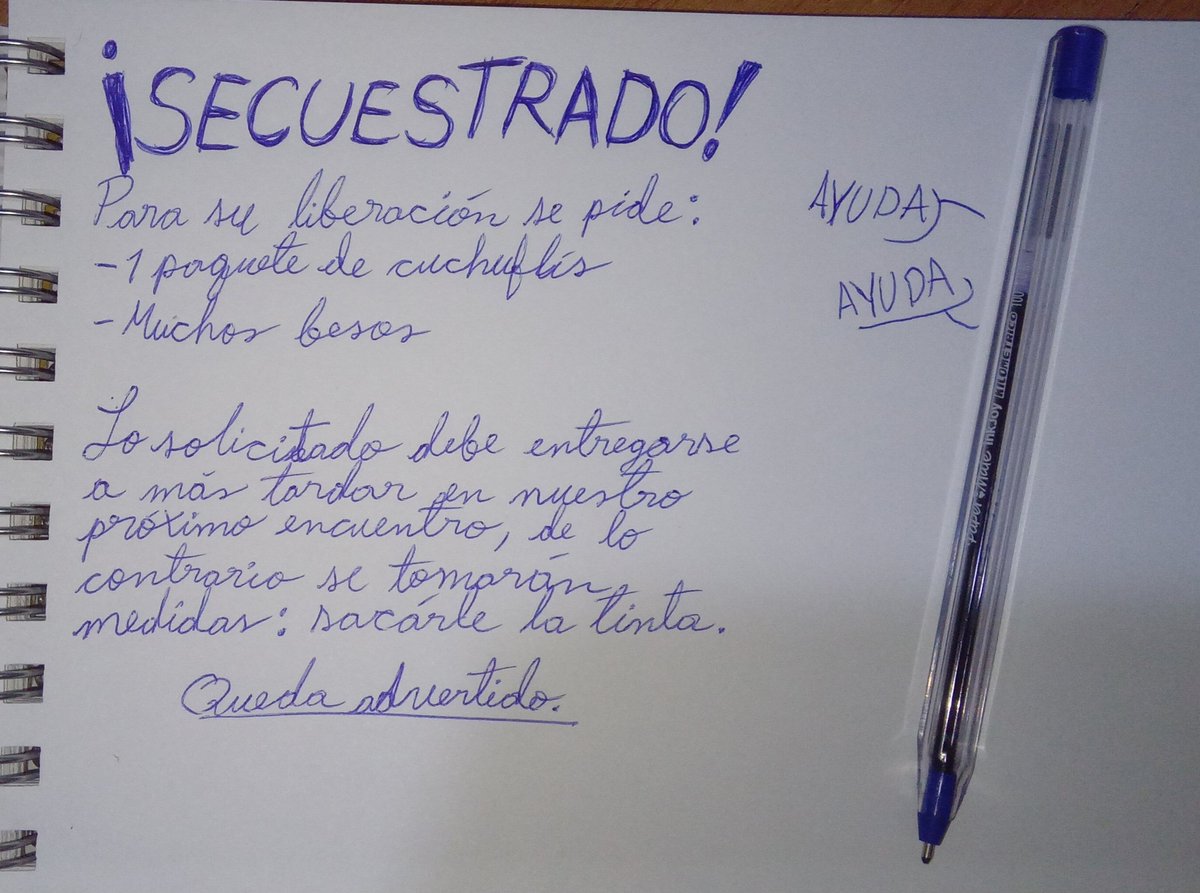 ¡SECUESTRADO!
Para su liberación se pide:
-1 paquete de cuchuflís
-Muchos besos
Lo solicitado debe entregarse
a más tardar en nuestro
próximo encuentro, de lo
contrario se tomarán
medidas: sacárle la tinta.
Queda advertido.
AYUDA
AYUDA
Paper Mate InkJoy KILOMETRICO 100